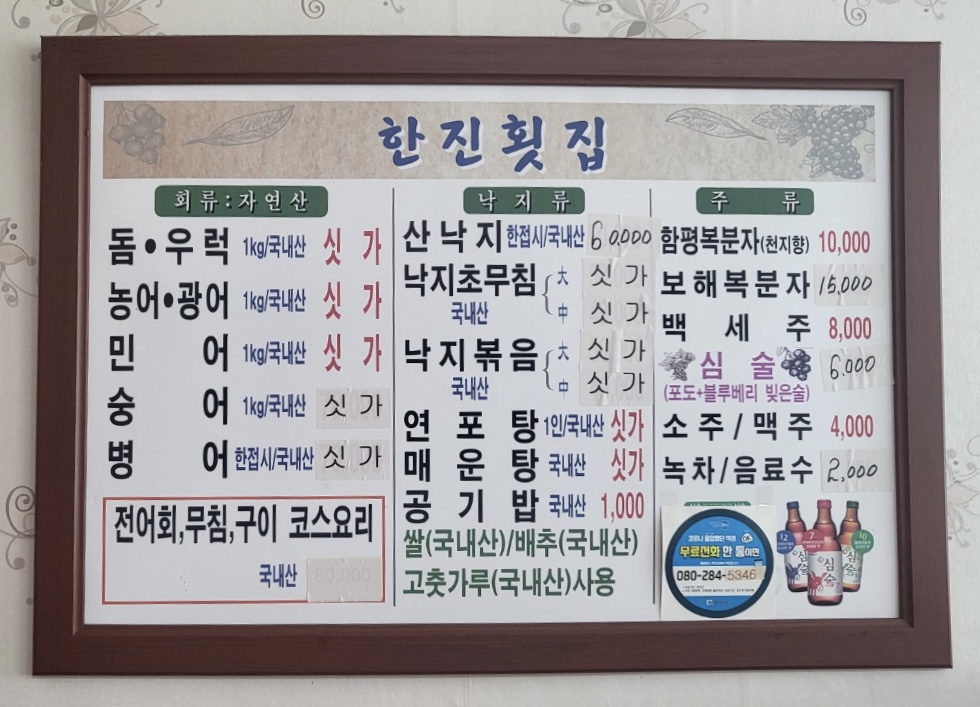 한진횟집
회류:자연산
돔•우럭 1kg/국내산 싯가
농어•광어 1kg/국내산 싯가
민어 1kg/국내산 싯가
숭어 1kg/국내산 싯가
병어 한접시/국내산 싯가
전어회,무침,구이 코스요리
국내산
낙지류
산낙지 한접시/국내산 60,000
낙지초무침 大 싯가
국내산 中 싯가
낙지볶음 大 싯가
국내산 中 싯가
연포탕 1인/국내산 싯가
매운탕 국내산 싯가
공기밥 국내산 1,000
쌀(국내산)/배추(국내산)
고춧가루(국내산)사용
주류
함평복분자(천지향) 10,000
보해복분자 15,000
백세주 8,000
심술 6.000
(포도+블루베리 빚은술)
소주/맥주 4,000
녹차/음료수 2,000
무료전화 한 통이면
080-284-5346
12 7 10
심술